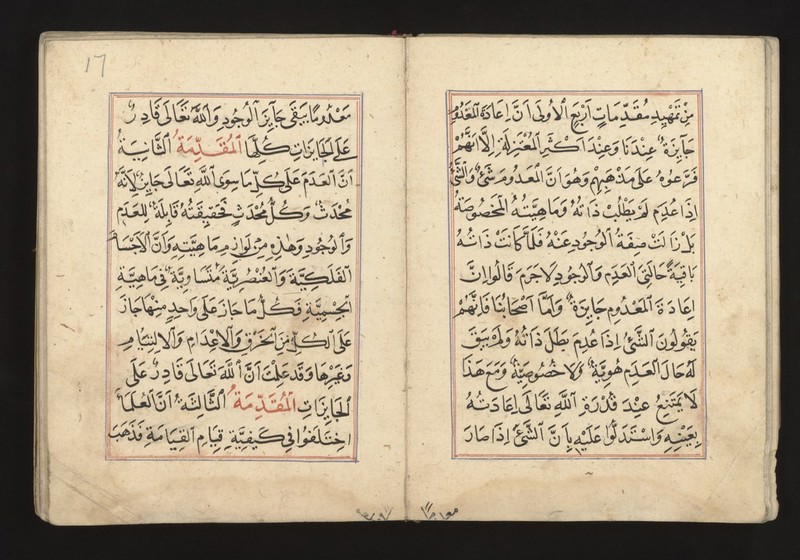 من تمهيد مقدمات اربع الاولى ان اعادة المعدوم
جايزة عندنا وعند اكثر المعتزلة الا انهم
فرعوه على مذهبهم وهو ان المعدوم شئ والشئ
اذا عدم لم يبطل ذاته وماهيته المخصوصة
بل زالت صفة الوجود عنه فلما كانت ذاته
باقية حالتى العدم والوجود لاجرم قالوا ان
اعادة المعدوم جايزة واما اصحابنا فانهم
يقولون الشئ اذا عدم بطل ذاته ولم يبق
له حال العدم هوية ولا خصوصية ومع هذا
لا يمتنع عند قدرة الله تعالى اعادته
بعينه واستدلوا عليه بان الشئ اذا صار
معدوما
17
معدوما يبقى جايز الوجود والله تعالى قادر
على الجايزات كلها المقدمة الثانية
ان العدم على كل ما سوى الله تعالى جايز لانه
محدث وكل محدث فحقيقته قابلة للعدم
والوجود وهذه من لوازم ماهيته وان الاجسام
الفلكية والعنصرية متساوية فى ماهية
الجسمية فكل ما جاز على واحد منها جاز
على الكل من الخرق والاعدام والالتيام
وغيرها وقد علمت ان الله تعالى قادر على
الجايزات المقدمة الثالثة ان العلماء
اختلفوا فى كيفية قيام القيامة فذهب